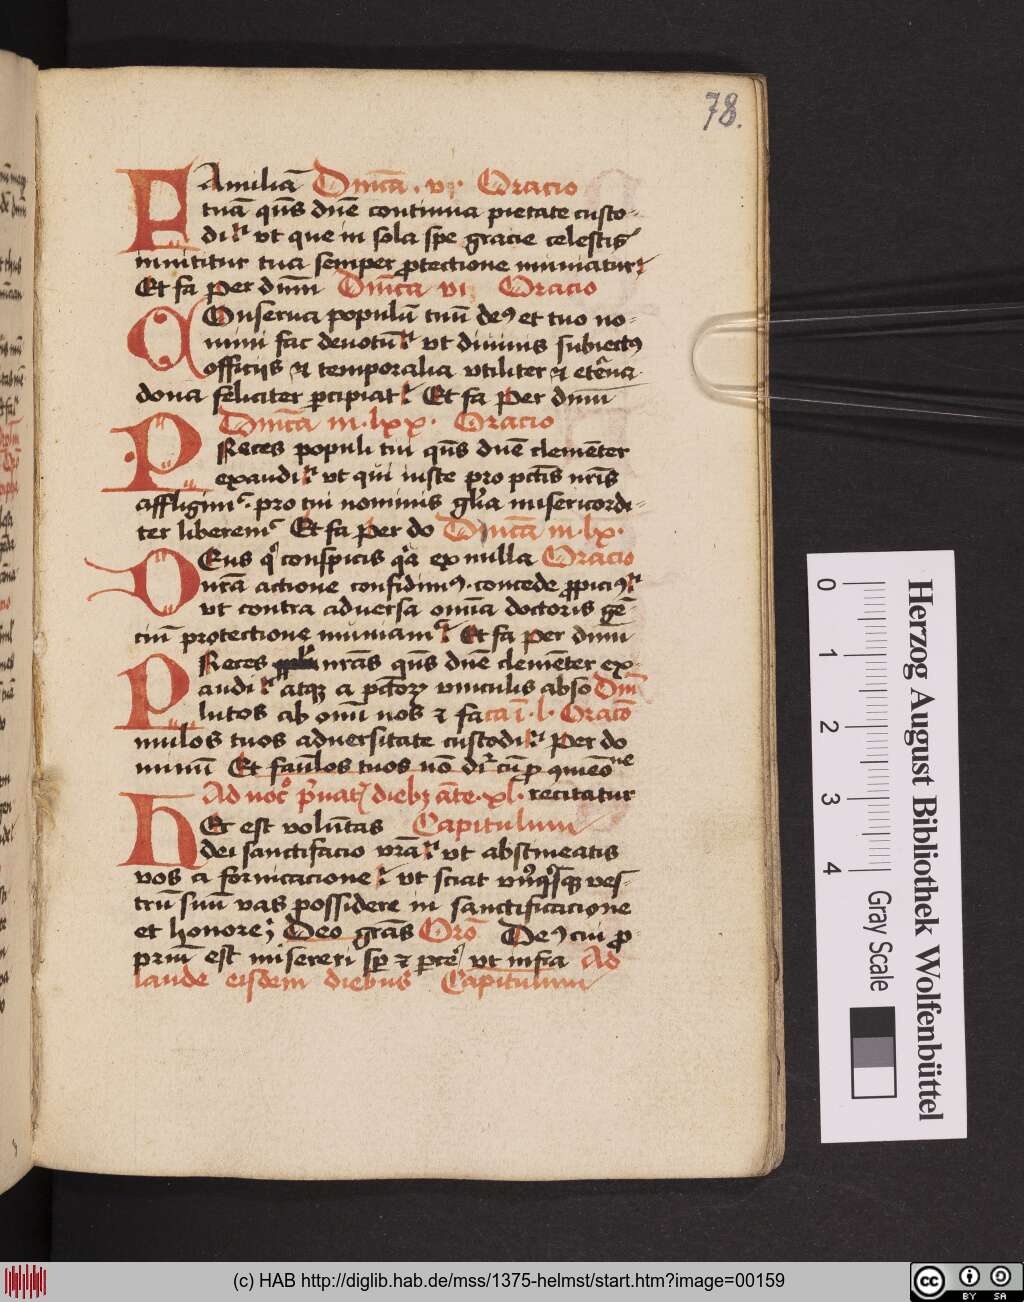 78.
FAmiliā Dn̄ica . v . Oracio
tuā qūs dn̄e continua pietate custo-
di vt que in sola spe gracie celestis
innititur tua semper ꝓtectione muniatur
Et fa per dnm̄ Dn̄ica vi Oracio
COnserua populū tuū deꝯ et tuo no-
mini fac deuotū vt diuinis subiectꝯ
officiis et temporalia vtiliter et et̄na
dona feliciter ꝑcipiat Et fa Per dnm̄
Dn̄ica in lxx. Oracio
PReces populi tui qūs dn̄e clemēter
exaudi vt qui iuste pro pctīs nr̄is
affligimꝰ. pro tui nominis glīa misericordi-
ter liberemꝰ Et fa per do Dn̄ica in lx.
DEus qͥ conspicis qͥa ex nulla Oracio
nrā actione confidimꝯ. concede ꝓpiciꝯ
vt contra aduersa omīa doctoris gē-
ciū protectione muniamꝰ Et fa per dnm̄
PReces nrās qūs dn̄e clemēter ex
audi atqꝫ a pctōꝝ vinculis abso Dnī
lutos ab omī nos et fa ca ī . l . Oracō
mulos tuos aduersitate custodi Per do
minū Et faūlos tuos nō dꝛ̄ cū ꝓ quieōne
Ad noct͛ pͥuatꝭ diebꝫ āte .xl. recitatur
HEc est volūtas Capitulum
dei sanctifacio vrā vt abstineatis
vos a fornicacione vt sciat vnꝰqͥsqꝫ ves-
trū suū vas possidere in sanctificacione
et honore; Deo grās Orō Deꝯ cui ꝓ
priū est misereri sꝑ et ꝑcē vt infra Ad
laude eisdem diebus Capitulum
0 1 2 3 4
Herzog August Bibliothek Wolfenbüttel
Gray Scale
(c) HAB http://diglib.hab.de/mss/1375-helmst/start.htm?image=00159
cc BY SA